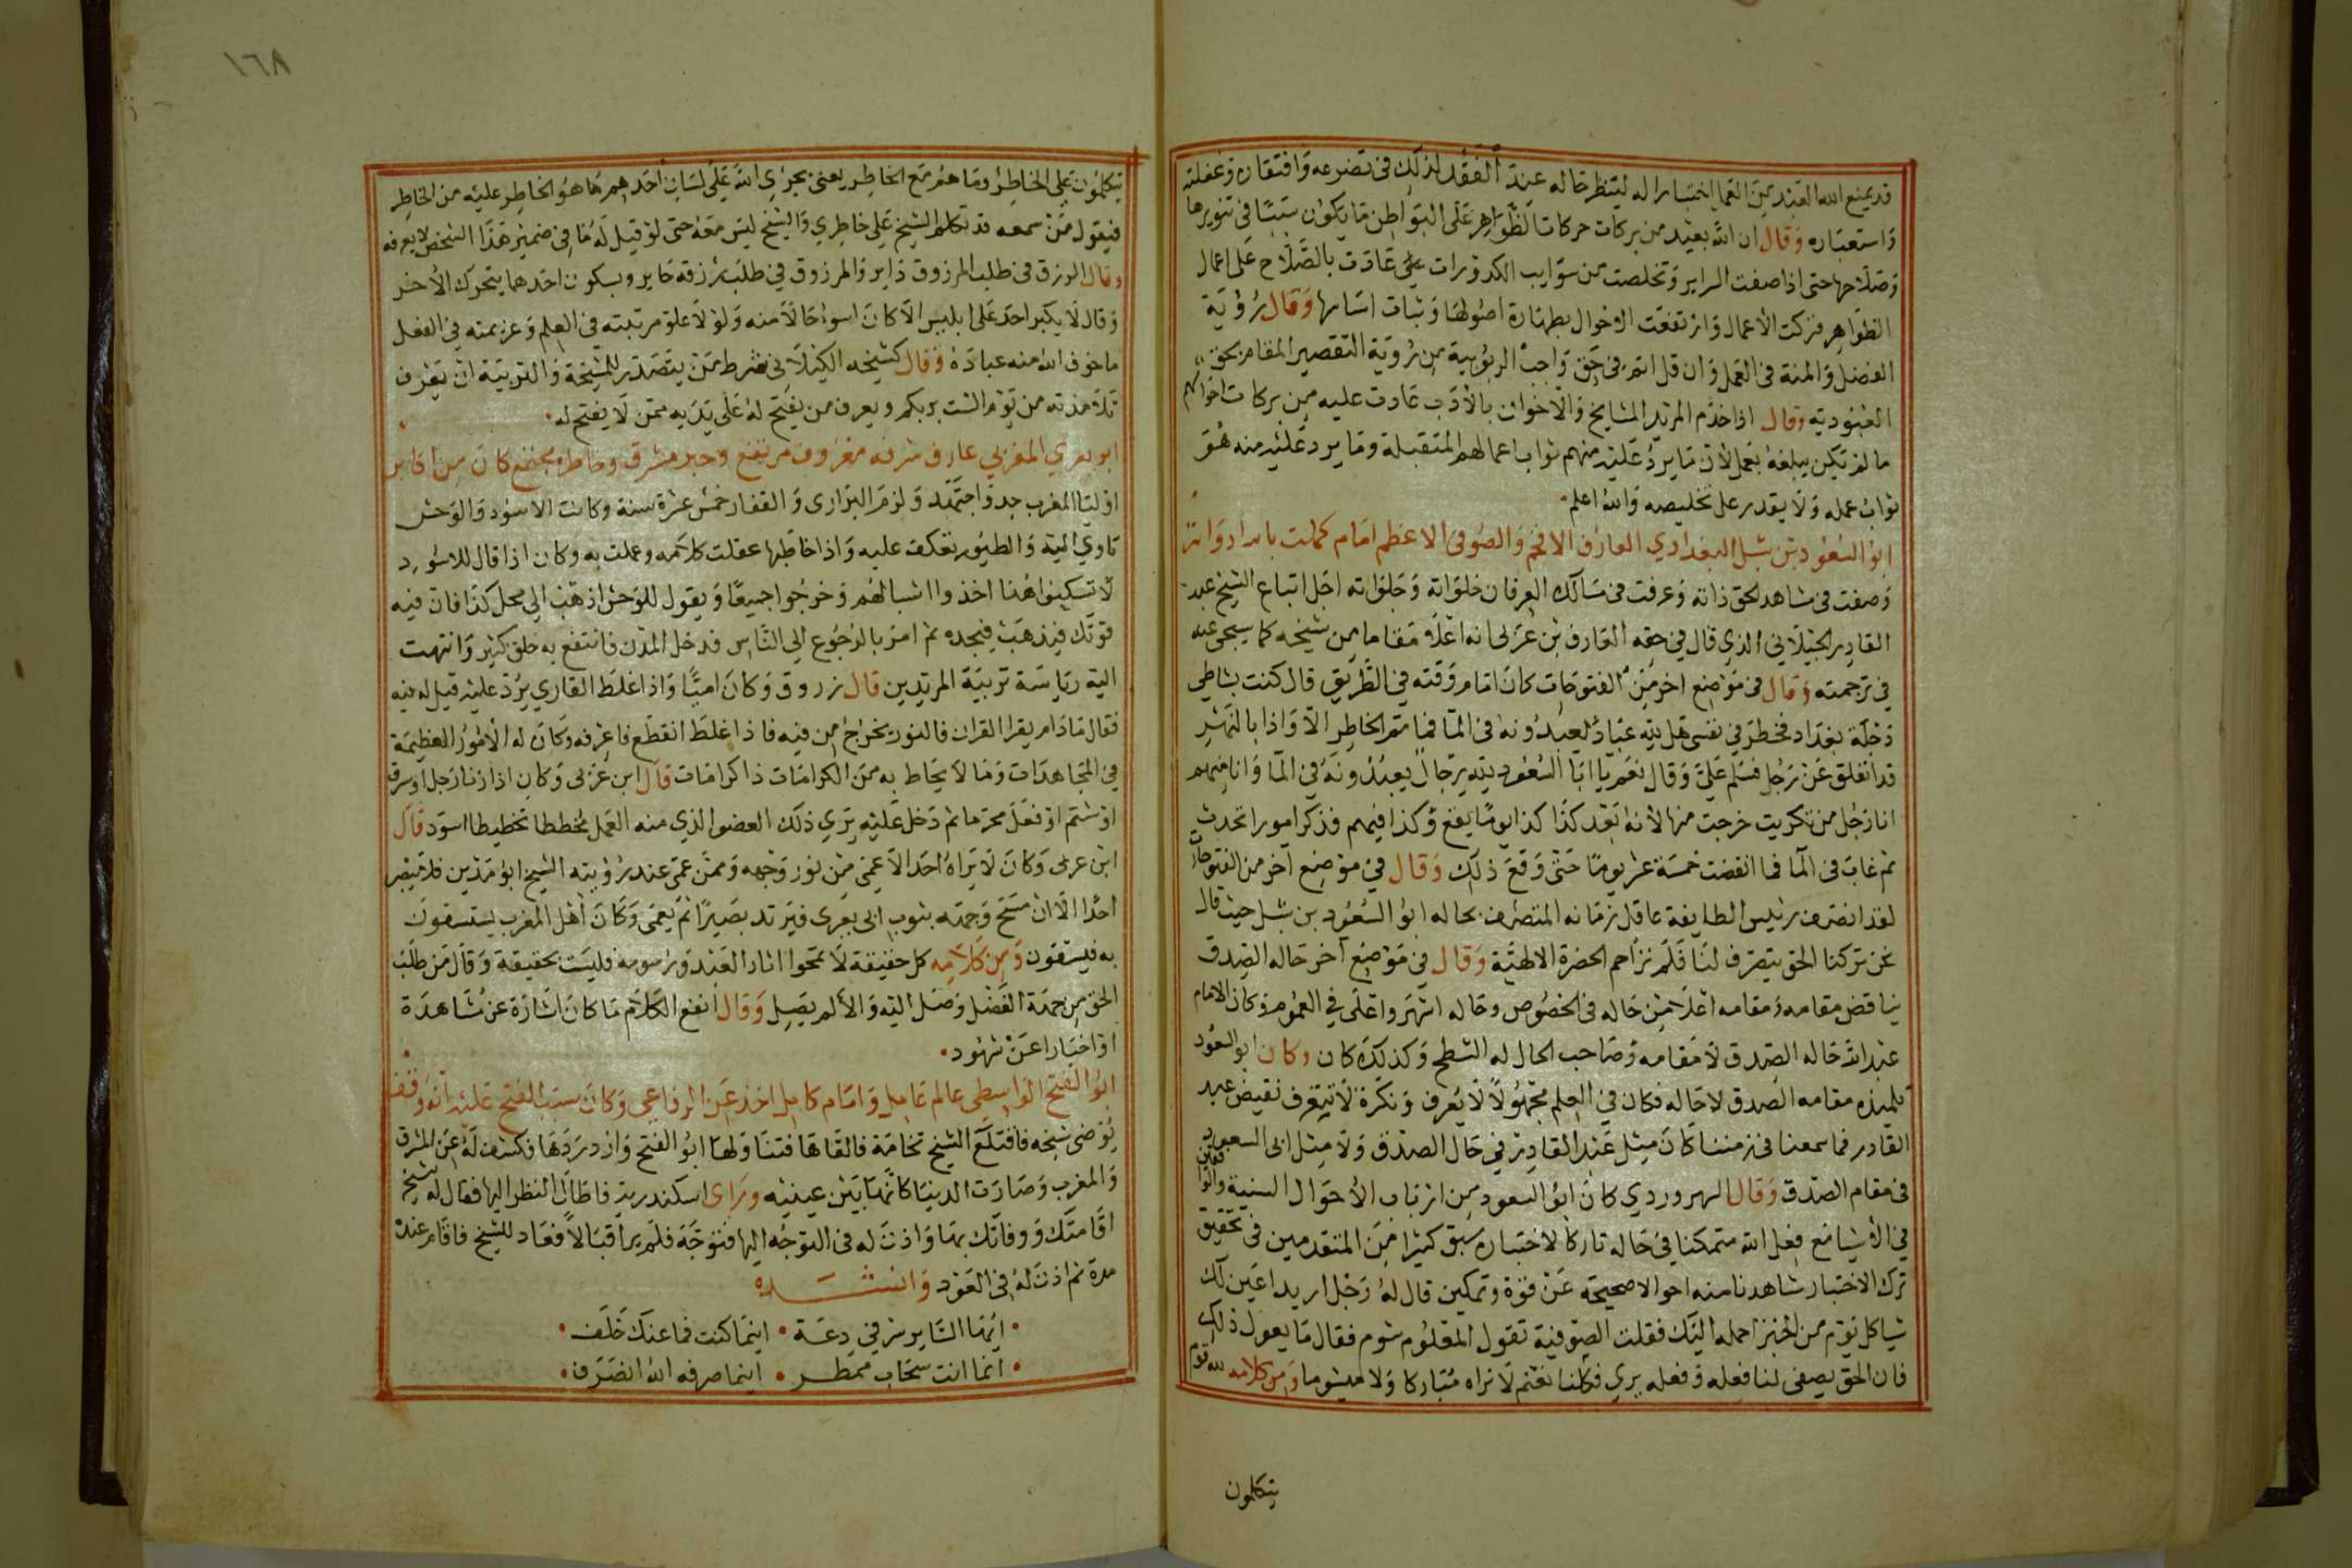 قد يمنع الله العبد من العمل اختبارا له لينظر حاله عند الفقد لذلك في تضرعه وافتقاره وغفلته
واستعباره وقال ان الله بعيد من بركات حركات الظواهر على البواطن ما يكون سببا في تنويرها
وصلاحها حتى اذا صفت السراير وتخلصت من سوايب الكدورات على عادت بالصلاح على اعمال
الظواهر فزكت الأعمال وارتفعت الاحوال بطهارة اصولها وثبات اساسها وقال رؤية
الفضل والمنة في العمل وان قل اتم في حق واجب الربوبية من رؤية التقصير المقام بحق
العبودية وقال اذا خدم المريد المشايخ والاخوان بالأدب عادت عليه من بركات احوالهم
ما لم يكن يبلغه بعمل لأن ما يرد عليه منهم ثواب اعمالهم المتقبلة وما يرد عليه منه هو
ثواب عمله ولا يقدر على تخليصه والله اعلم
ابو السعود بن شبل البغدادي العارف الافخم والصوفي الاعظم امام كملت بالله ادواته
وصفت في مشاهد الحق ذاته وعرفت في مسالك العرفان خلواته وجلواته اجل اتباع الشيخ عبد
القادر الجيلاني الذي قال في حقه العارف بن عربي انه اعلا مقاما من شيخه كما سيجى عنه
في ترجمته وقال في موضع اخر من الفتوحات كان امام وقته في الطريق قال كنت بشاطي
دجلة بغداد فخطر في نفسي هل لله عباد يعبدونه في الما فما تم الخاطر الا واذا بالنهر
قد انفلق عن رجل فسلم علي وقال نعم يا ابا السعود لله رجال يعبدونه في الما وانا منهم
انا رجل من تكريت خرجت منها لأنه بعد كذا كذا يوما يقع وكذا فيهم فذكر امورا تحدث
ثم غاب في الما فما انقضت خمسة عشر يوما حتى وقع ذلك وقال في موضع آخر من الفتوحات
لقد انصف رئيس الطايفة عاقل زمانه المتصرف بحاله ابو السعود بن شبل حيث قال
نحن تركنا الحق يتصرف لنا فلم نزاحم الحضرة الالهية وقال في موضع آخر حاله الصدق
يناقض مقامه ومقامه اعلا من حاله في الخصوص وحاله اشهر واعلى في العموم وكان الامام
عبد الله حاله الصدق لا مقامه وصاحب الحال له الشطح وكذلك كان وكان ابو السعود
تلميذه مقامه الصدق لا حاله فكان في العلم مجهولا لا يعرف ونكرة لا تتعرف نقيض عبد
القادر فما سمعنا في زمننا كان مثل عبد القادر في حال الصدق ولا مثل ابى السعود
في مقام الصدق وقال السهروردي كان ابو السعود من ارباب الأحوال السنية والواقفين
في الأشيا مع فعل الله متمكنا في حاله تاركا لاختياره سبق كثيرا من المتقدمين في تحقيق
ترك الاختيار شاهدنا منه احوالا صحيحة عن قوة وتمكين قال له رجل اريد اعين لك
شيا كل يوم من الخبز احمله اليك فقلت الصوفية تقول المعلوم شوم فقال ما يعول ذلك
فان الحق يصفى لنا فعله وفعله يرى فكلنا نغنم لا نراه مباركا ولا ميشوما ومن كلامه لله قوم
يتكلمون
١٦٨
يتكلمون على الخاطر وما هم مع الخاطر يعنى يجرى الله على لسان احدهم ما هو الخاطر عليه من الخاطر
فيقول من سمعه قد تكلم الشيخ على خاطري والشيخ ليس معه حتى لو قيل له ما في ضمير هذا الشخص لا يعرفه
وقال الرزق في طلب المرزوق داير والمرزوق في طلب رزقه حاير وبسكون احدهما يتحرك الأخر
وقال لا يكبر احد على ابليس الا كان اسوء حالا منه ولولا علو مرتبته في العلم وعزيمته في الفعل
ما خوف الله منه عباده وقال كشيخه الكيلاني شرط من يتصدر للمشيخة والتربية ان يعرف
تلامذته من يوم الست بربكم ويعرف من يفتح له على يديه ممن لا يفتح له
ابو يعزي المغربي عارف شرفه معروف مرتفع وحبر مشرق وخاطره مجتمع كان من اكابر
اوليا المغرب جد واجتهد ولزم البراري والقفار خمس عشرة سنة وكانت الاسود والوحش
تاوي اليه والطيور تعكف عليه واذا خاطبها عقلت كلامه وعملت به وكان اذا قال للاسود
لا تسكنوا هنا اخذوا اشبالهم وخرجوا جميعا ويقول للوحش اذهب الى محل كذا فان فيه
قوتك فيذهب فيجده ثم امر بالرجوع الى الناس فدخل المدن فانتفع به خلق كثير وانتهت
اليه رياسة تربية المريدين قال زروق وكان اميا واذا غلط القاري يرد عليه قيل له فيه
فقال ما دام يقرا القران فالنور يخرج من فيه فاذا غلط انقطع فاعرفه وكان له الأمور العظيمة
في المجاهدات وما لا يحاط به من الكرامات ذا كرامات قال ابن عربي وكان اذا زنا رجل او سرق
او شتم او فعل محرما ثم دخل عليه يرى ذلك العضو الذي منه العمل مخططا تخطيطا اسود قال
ابن عربي وكان لا يراه احد الا عمى من نور وجهه وممن عمى عند رؤيته الشيخ ابو مدين فلا يبصر
احدا الا ان مسح وجهه بثوب ابى يعزى فيرتد بصيرا ثم يعمى وكان اهل المغرب يستسقون
به فيسقون ومن كلامه كل حقيقة لا تمحوا اثار العبد ورسومه فليست بحقيقة وقال من طلب
الحق من جهة الفضل وصل اليه والا لم يصل وقال انفع الكلام ما كان اشارة عن مشاهدة
او اخبارا عن شهود
ابو الفتح الواسطي عالم عامل وامام كامل اخذ عن الرفاعي وكان سبب الفتح عليه انه وقف
يوضى شيخه فاقتلع الشيخ نخامة فالقاها فتناولها ابو الفتح وازدردها فكشف له عن المشرق
والمغرب وصارت الدنيا كانها بين عينيه وراى اسكندرية فاطال النظر اليها فقال له الشيخ
اقامتك ووفاتك بها واذن له في التوجه اليها فتوجه فلم ير اقبالا فعاد للشيخ فاقام عنده
مدة ثم اذن له في العود وانشده
ايها السايرسر في دعة اينما كنت فما عنك خلف
انما انت سحاب ممطر اينما صرفه الله انصرف